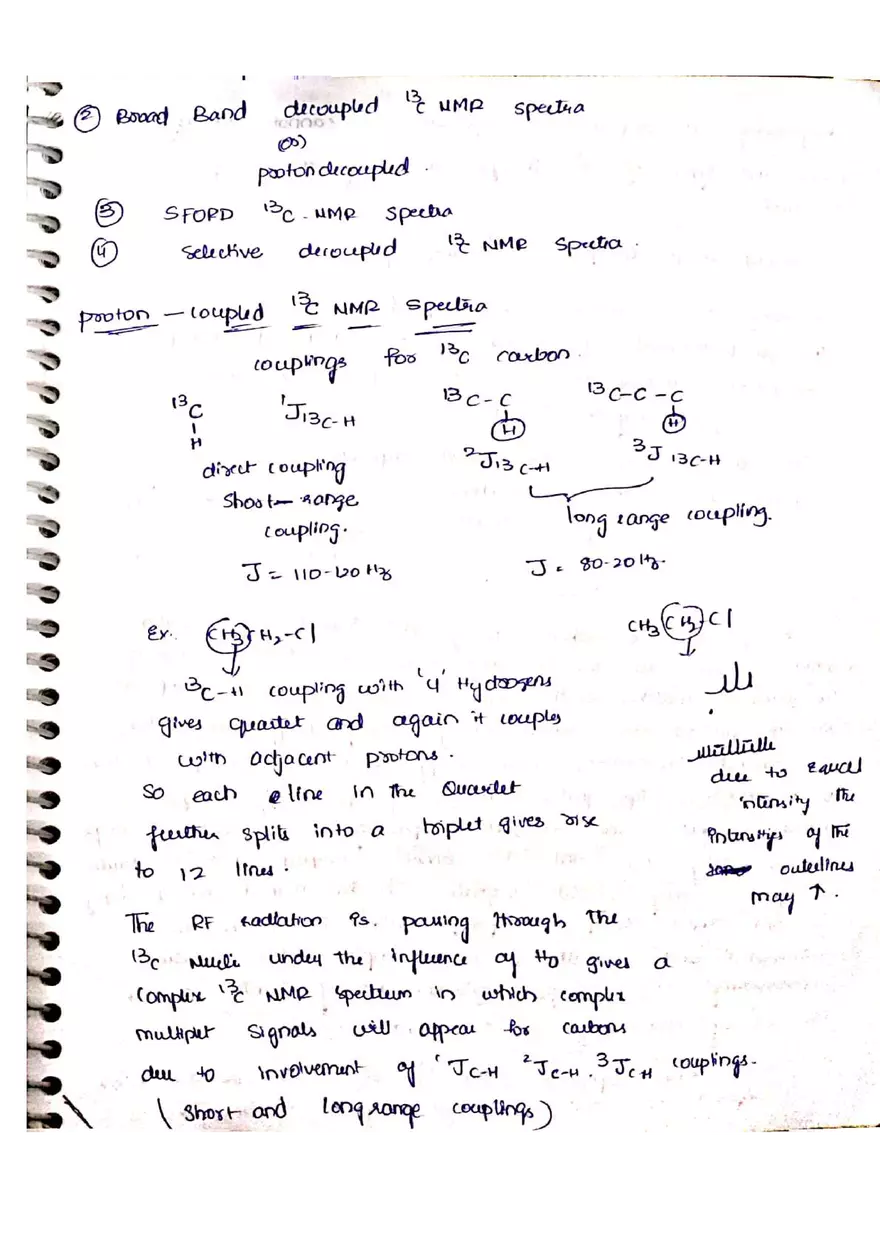 ② Broad Band decoupled ¹³C NMR spectra
(or)
proton decoupled.
③ SFORD ¹³C-NMR spectra
④ Selective decoupled ¹³C NMR spectra.
proton - coupled ¹³C NMR spectra
couplings for ¹³C carbon.
¹³C ¹J13C-H ¹³C-C ¹³C-C-C
H H H
²J13C-H ³J13C-H
direct coupling
short-range
coupling.
long range coupling.
J = 110-120 Hz J = 80-20 Hz.
Ex. CH3 H2-Cl CH3 CH2 Cl
¹³C-H coupling with '4' Hydrogens
gives quartet and again it couples
with adjacent protons.
So each line in the Quartet
further splits into a triplet gives rise
to 12 lines.
due to Equal
intensity the
intensities of the
outerlines
may ↑.
The RF radiation is passing through the
¹³C Nuclei under the influence of H0 gives a
complex ¹³C NMR spectrum in which complex
multiplet signals will appear for carbons
due to involvement of ¹JC-H ²JC-H. ³JCH couplings.
(short and long range couplings)